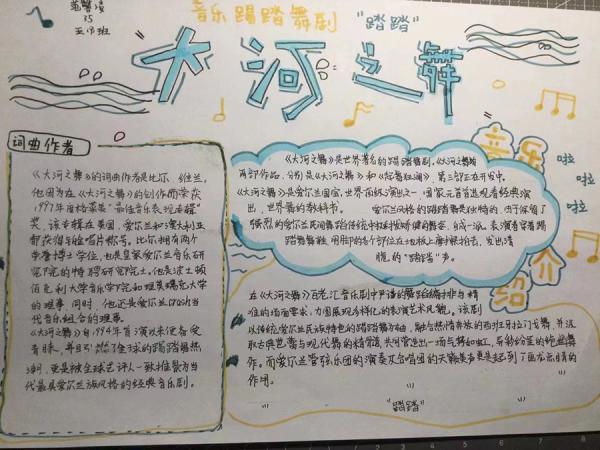 音乐踢踏舞剧 "踏踏"
35
五中班
大河之舞
词曲作者
《大河之舞》的词曲作者是比尔·
他因为在《大河之舞》的创作而荣获
1997年度格莱美"最佳音乐表现专辑"
奖,该专辑在美国,爱尔兰和澳大利亚
都获得白金唱片称号。比尔拥有两个
荣誉博士学位,也是皇家爱尔兰音乐研
究学院的特聘研究院士。他是波士顿
伯克利大学音乐学院和理莫瑞克大学
的理事 同时,他还是爱尔兰crosh当
代音乐组合的理事。
《大河之舞》自1994年首演以来便备受
青睐,并且引燃了全球的踢踏舞热
潮,更是被全球艺评人一致推崇为当
代最具爱尔兰族风格的经典音乐剧。
《大河之舞》是世界著名的踢踏舞剧,《大河之舞》
两部作品,分别是《大河之舞》和《起舞狂澜》,第三部正在开发中。
《大河之舞》是爱尔兰国宝,世界顶级演出之一 国家元首首选观看经典演
出,世界舞的教科书。 爱尔兰风格的踢踏舞最独特的,由于保留了
强烈的爱尔兰民间舞蹈传统中
踢踏舞舞鞋,用脚的各个部位在地板上摩擦拍击,发出清
脆的"踢踏"声。
音乐介绍
啦
啦
啦
啦
在《大河之舞》百老汇音乐剧中严谨的舞蹈编排与精
准的场面要求,力图展现多样化的表演艺术风貌。该剧
以传统爱尔兰民族特色的踢踏舞为轴,融合热情奔放的西班牙拉门戈舞,并汲
取古典芭蕾与现代舞的精髓,共同营造出一场
作。而爱尔兰管弦乐团的演奏及合唱团的天籁美声更是起到了画龙点睛的
作用。
"踏踏"